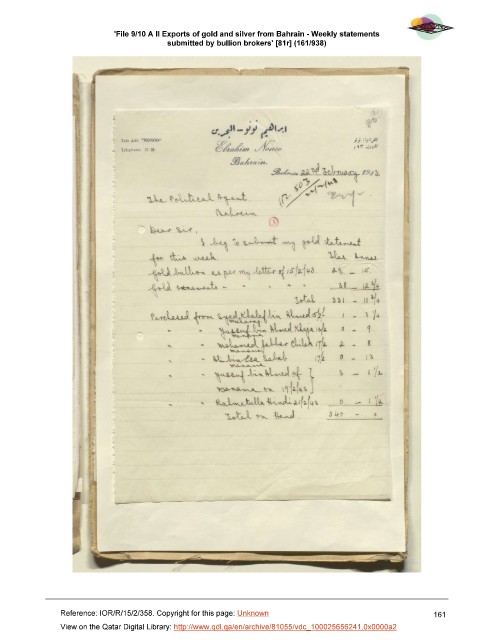 'File 9/10 A II Exports of gold and silver from Bahrain - Weekly statements
submitted by bullion brokers' [81r] (161/938)
ابراهيم نونو - البحرين
Ebrahim Nonoo
Bahrain.
Bahrain 22nd February 194
The Political Agent
Bahrain
Dear Sir,
I beg to submit my gold statement
for this week. Tolas Annas
Gold bullion as per my letter of 15/2/43
Gold
Total 331 - 11
Purchased from Syed Khalaf bin Ahmed 1 -
" " Yusuf bin Ahmed 9
" " Mohamed Jabbar 17/2 2 - 8
" " Ali bin 17/2 0 - 12
" " Yusuf bin Ahmed of 3 - 1 1/2
Manama on 19/2/43
" " Rahmatulla Hindi 21/2/43 0 - 1 1/2
Total on Hand 340 -
Reference: IOR/R/15/2/358. Copyright for this page: Unknown
161
View on the Qatar Digital Library: http://www.qdl.qa/en/archive/81055/vdc_100025656241.0x0000a2